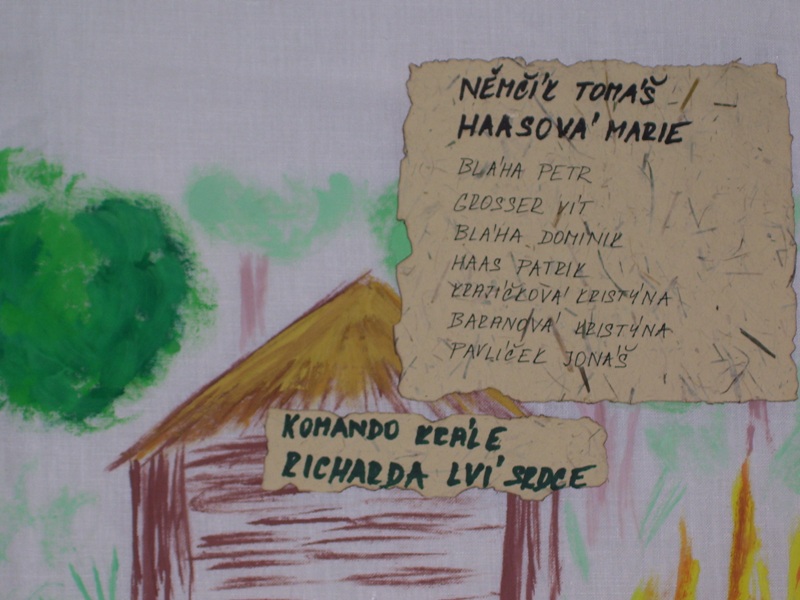 NĚMČÍK TOMÁŠ
HAASOVÁ MARIE
BLÁHA PETR
GROSSER VÍT
BLÁHA DOMINIK
HAAS PATRIK
KRAJÍČKOVÁ KRISTÝNA
BARANOVÁ KRISTÝNA
PAVLÍČEK JONÁŠ
KOMANDO KRÁLE
RICHARDA LVÍ SRDCE